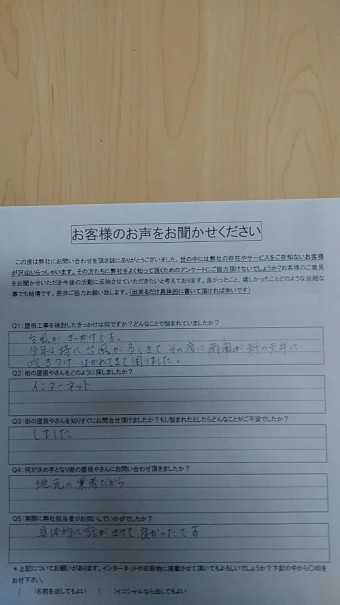 お客様のお声をお聞かせください
この度は弊社にお問い合わせを頂き誠にありがとうございました。世の中には弊社の存在やサービスをご存知ないお客様
が沢山いらっしゃいます。その方たちに弊社をよく知って頂くためのアンケートにご協力頂けないでしょうか？お客様のご意見
をお聞かせいただき今後の活動に反映させていただきたいと考えております。良かったこと、嬉しかったことどのような些細な
事でも結構です。是非ご協力お願い致します。（出来るだけ具体的に書いて頂ければ幸いです）
Q1：屋根工事を検討したきっかけは何ですか？どんなことで悩まれていましたか？
台風がきっかけです。
今年は特に台風が多しきて、その度に雨風が軒の天井に
吹きつけ はがれてきて困りました。
Q2：街の屋根やさんをどのように探しましたか？
インターネット
Q3：街の屋根やさんを知りすぐにお問合せ頂けましたか？もし悩まれたとしたらどんなことがご不安でしたか？
しました
Q4：何が決め手となり街の屋根やさんにお問い合わせ頂きましたか？
地元の業者だから
Q5：実際に弊社担当者がお伺いしていかがでしたか？
具体的に話がきけて良かったです
＊上記についてお願いがあります。インターネットや印刷物に掲載させて頂いてもよろしいでしょうか？下記の中から〇印を
お付下さい。
（　）名前を出してもよい　（　）イニシャルなら出してもよい